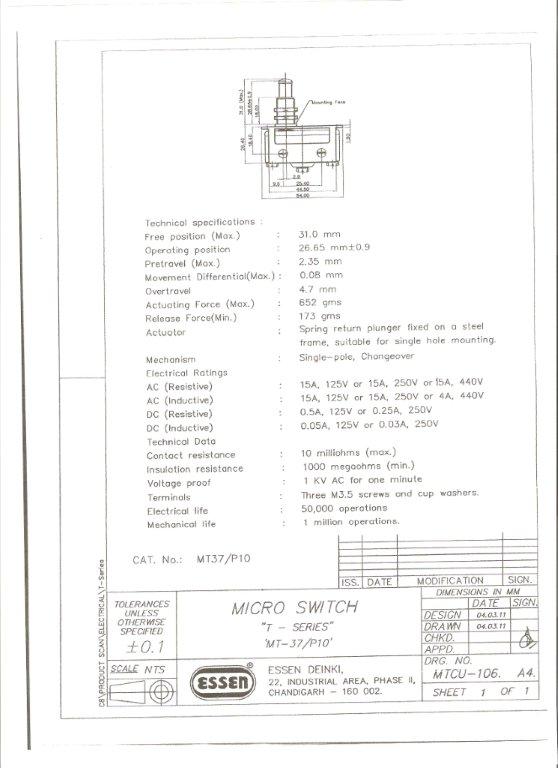 31.0 (Max.)
26.65±0.9
16.00
Mounting Face
26.40
16.40
1.90
9.6
2.9
25.40
44.50
54.00
Technical specifications :
Free position (Max.) : 31.0 mm
Operating position : 26.65 mm±0.9
Pretravel (Max.) : 2.35 mm
Movement Differential(Max.) : 0.08 mm
Overtravel : 4.7 mm
Actuating Force (Max.) : 652 gms
Release Force(Min.) : 173 gms
Actuator : Spring return plunger fixed on a steel
frame, suitable for single hole mounting.
Mechanism : Single-pole, Changeover
Electrical Ratings
AC (Resistive) : 15A, 125V or 15A, 250V or 15A, 440V
AC (Inductive) : 15A, 125V or 15A, 250V or 4A, 440V
DC (Resistive) : 0.5A, 125V or 0.25A, 250V
DC (Inductive) : 0.05A, 125V or 0.03A, 250V
Technical Data
Contact resistance : 10 milliohms (max.)
Insulation resistance : 1000 megaohms (min.)
Voltage proof : 1 KV AC for one minute
Terminals : Three M3.5 screws and cup washers.
Electrical life : 50,000 operations
Mechanical life : 1 million operations.
CAT. No.: MT37/P10
ISS. DATE MODIFICATION SIGN.
C8\PRODUCT SCAN\ELECTRICAL\T-Series
TOLERANCES
UNLESS
OTHERWISE
SPECIFIED
±0.1
MICRO SWITCH
"T - SERIES"
'MT-37/P10'
DIMENSIONS IN MM
DATE SIGN.
DESIGN 04.03.11
DRAWN 04.03.11
CHKD.
APPD.
SCALE NTS
ESSEN
ESSEN DEINKI,
22, INDUSTRIAL AREA, PHASE II,
CHANDIGARH - 160 002.
DRG. NO.
MTCU-106. A4.
SHEET 1 OF 1